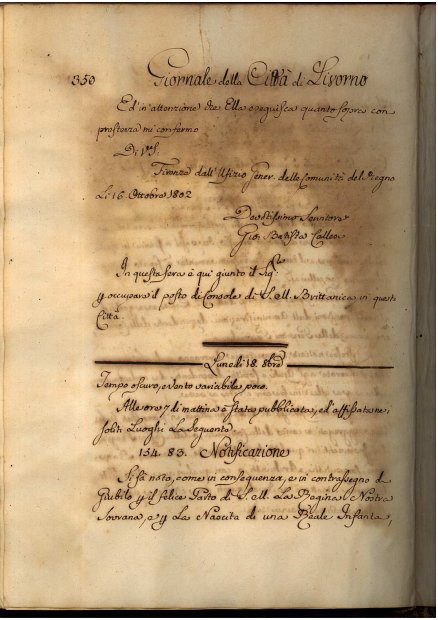 350 Giornale della Città di Livorno
Ed in attenzione che Ella eseguisca quanto sopra con
prontezza mi confermo
Di V.S.
Firenze dall'Ufizio Gener. delle Comunità del Regno
Li 16. Ottobre 1802
Devotissimo Servitore
Gio. Batista
In questa sera è qui giunto il Sig.r
p occupare il posto di Console di S. M. Brittanica in questa
Città
Lunedì 18. 8bre
Tempo oscuro, e vento variabile poco.
Alle ore 7 di mattina è stata pubblicata, ed affissata ne'
soliti Luoghi La Seguente
154. 83. Notificazione
Si fà noto, come in conseguenza, e in contrassegno di
Giubilo p il felice Parto di S. M. La Regina Nostra
Sovrana, e p La Nascita di una Reale Infanta,